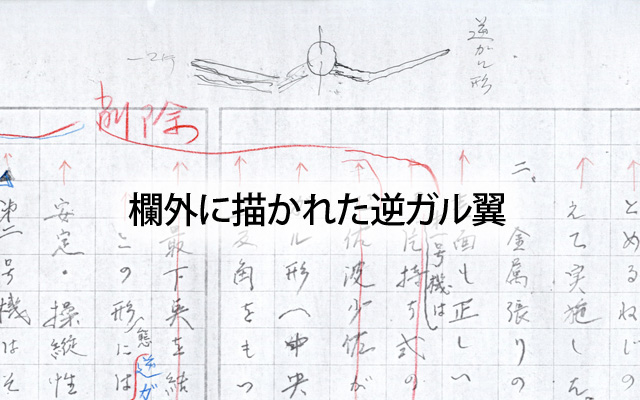 逆ガル形
削除
欄外に描かれた逆ガル翼
とめるねじの
えて実施した。
二。金属張りの
面も正しい
号機は
片持ち式の
佐波少佐が
ル形(中央
反角をもつ
最下点を結
この形には
態
逆が
安定・操縦性
第二号機はそ